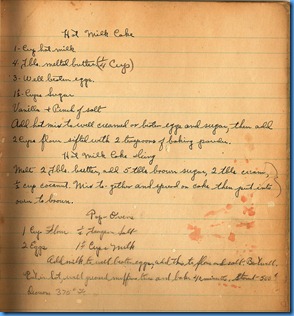 Hot Milk Cake
1- Cup hot milk
4. Tbls. melted butter (¼ Cup)
3- Well beaten eggs.
Cups Sugar
Vanilla & Pinch of salt
Add hot mix to well creamed or beten eggs and sugar, then add
2 Cups flour sifted with 2 teaspoons of baking powder.
Hot Milk Cake Icing
Melt 2 Tbls. butter, add 5 tbls brown sugar, 2 tbls. cream,
½ cup coconut. Mix together and spread on cake then put into
oven to brown.
Pop-Overs
1 Cup Flour ½ Teaspn. Salt
2 Eggs Cups Milk
Add milk to well beaten eggs, add this to flour and salt. Beat well.
Put in hot, well greased muffin tins and bake minutes. Start 500°
375° F.